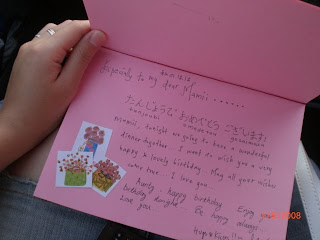 Especially to my dear Mamii ......
たんじょうび おめでとう ございます!
Mamii, tonight we going to have a wonderful
dinner together. I want to wish you a very
happy & lovely birthday. May all your wishes
come true. I love you.
Lastly, happy birthday. Enjoy your
birthday tonight. Be happy always.
Love you.
2008